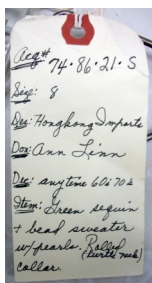 Acq# 74·86·21·S
Size: 8
Des: Hongkong Imports
Don: Ann Linn
Dec: anytime 60's 70's
Item: Green sequin
+ bead sweater
w/pearls. Rolled
(turtle neck)
collar.